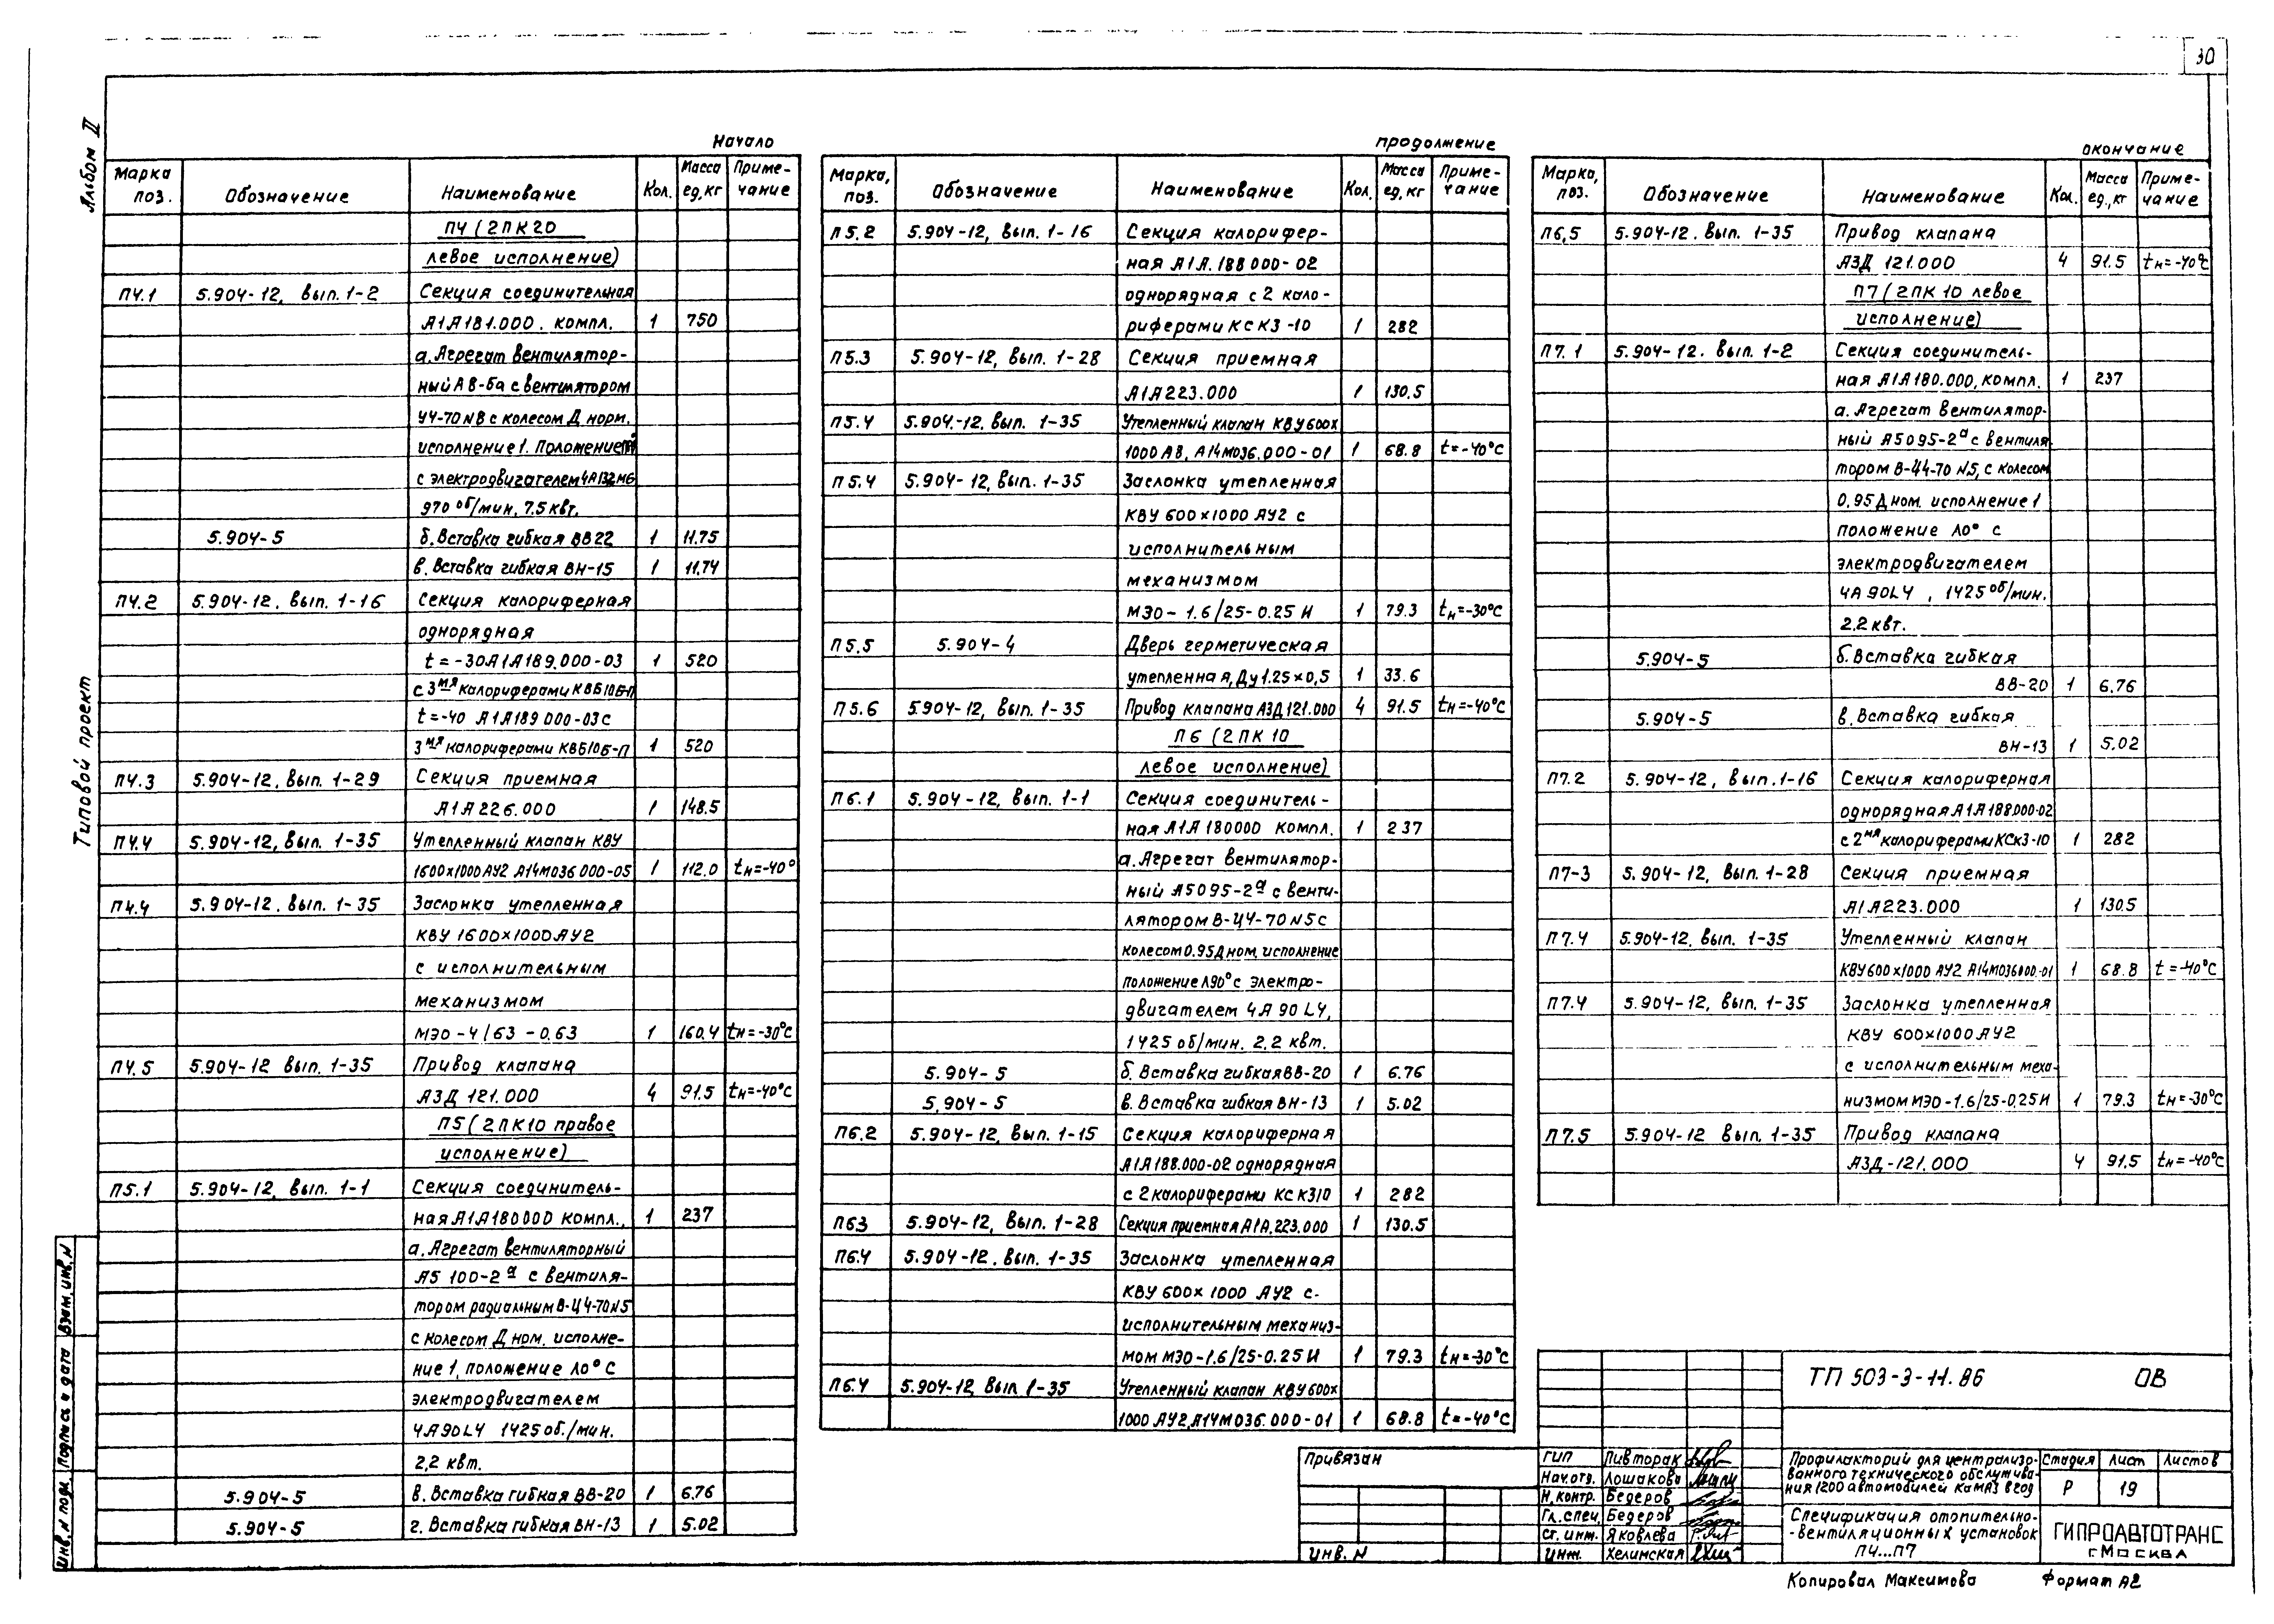 30
Альбом II
Типовой проект
Начало
Марка поз. Обозначение Наименование Кол. Масса ед, кг Приме-чание
П4 (2ПК20
левое исполнение)
П4.1 5.904-12, вып. 1-2 Секция соединительная
А1А181.000. компл. 1 750
а. Агрегат вентилятор-
ный А8-6а с вентилятором
Ч4-70 N8 с колесом Д норм.
исполнение 1. Положение
с электродвигателем 4А132М6
970 об/мин. 7.5 квт.
5.904-5 б. Вставка гибкая ВВ22 1 11.75
в. Вставка гибкая ВН-15 1 11.74
П4.2 5.904-12. вып. 1-16 Секция калориферная
однорядная
t=-30 А1А189.000-03 1 520
с 3мя калориферами КВБ10Б-П
t=-40 А1А189 000-03 с
3мя калориферами КВБ10Б-П 1 520
П4.3 5.904-12, вып. 1-29 Секция приемная
А1А226.000 1 148.5
П4.4 5.904-12, вып. 1-35 Утепленный клапан КВУ
1600х1000 АУ2 А14М036 000-05 1 112.0 tн=-40°
П4.4 5.904-12. вып. 1-35 Заслонка утепленная
КВУ 1600х1000 АУ2
с исполнительным
механизмом
МЭО-4/63-0.63 1 160.4 tн=-30°С
П4.5 5.904-12 вып. 1-35 Привод клапана
АЗД 121.000 4 91.5 tн=-40°С
П5 (2ПК10 правое
исполнение)
П5.1 5.904-12, вып. 1-1 Секция соединитель-
ная А1А180000 компл., 1 237
а. Агрегат вентиляторный
А5 100-2а с вентиля-
тором радиальным В-Ц4-70 N5
с колесом Д ном. исполне-
ние 1, положение Л0° с
электродвигателем
4А90L4 1425 об./мин.
2,2 квт.
5.904-5 в. Вставка гибкая ВВ-20 1 6.76
5.904-5 г. Вставка гибкая ВН-13 1 5.02
продолжение
Марка, поз. Обозначение Наименование Кол. Масса ед, кг Приме-чание
П5.2 5.904-12, вып. 1-16 Секция калорифер-
ная А1А.188 000-02
однорядная с 2 кало-
риферами КСК3-10 1 282
П5.3 5.904-12, вып. 1-28 Секция приемная
А1А223.000 1 130.5
П5.4 5.904.-12, вып. 1-35 Утепленный клапан КВУ600х
1000 АВ, А14М036.000-01 1 68.8 t=-40°С
П5.4 5.904-12, вып. 1-35 Заслонка утепленная
КВУ 600х1000 АУ2 с
исполнительным
механизмом
МЭО-1.6/25-0.25 И 1 79.3 tн=-30°С
П5.5 5.904-4 Дверь герметическая
утепленная, Ду 1.25х0,5 1 33.6
П5.6 5.904-12, вып. 1-35 Привод клапана АЗД 121.000 4 91.5 tн=-40°С
П6 (2ПК10
левое исполнение)
П6.1 5.904-12, вып. 1-1 Секция соединитель-
ная А1А 180000 компл. 1 237
а. Агрегат вентилятор-
ный А5095-2а с венти-
лятором В-Ц4-70 N5 с
колесом 0.95 Д ном. исполнение
положение Л90° с электро-
двигателем 4А 90 L4,
1425 об/мин. 2,2 квт.
5.904-5 б. Вставка гибкая ВВ-20 1 6.76
5,904-5 в. Вставка гибкая ВН-13 1 5.02
П6.2 5.904-12, вып. 1-15 Секция калориферная
А1А188.000-02 однорядная
с 2 калориферами КСК310 1 282
П63 5.904-12, вып. 1-28 Секция приемная А1А.223.000 1 130.5
П6.4 5.904-12. вып. 1-35 Заслонка утепленная
КВУ 600х1000 АУ2 с-
исполнительным механиз-
мом МЭО-1.6/25-0.25 И 1 79.3 tн=-30°С
П6.4 5.904-12, вып 1-35 Утепленный клапан КВУ600х
1000 АУ2, А14М036.000-01 1 68.8 t=-40°С
окончание
Марка, поз. Обозначение Наименование Кол. Масса ед., кг Приме-чание
П6,5 5.904-12. вып. 1-35 Привод клапана
АЗД 121.000 4 91.5 tн=-40°С
П7 (2ПК10 левое
исполнение)
П7.1 5.904-12. вып. 1-2 Секция соединитель-
ная А1А180.000, компл. 1 237
а. Агрегат вентилятор-
ный А5095-2а с вентиля
тором В-Ц4-70 N5, с колесом
0,95 Д ном. исполнение 1
положение Л0° с
электродвигателем
4А90L4, 1425 об/мин.
2.2 квт.
5.904-5 б. Вставка гибкая
ВВ-20 1 6.76
5.904-5 в. Вставка гибкая
ВН-13 1 5.02
П7.2 5.904-12, вып. 1-16 Секция калориферная
однорядная А1А188.000-02
с 2мя калориферами КСк3-10 1 282
П7-3 5.904-12, вып. 1-28 Секция приемная
А1А223.000 1 130.5
П7.4 5.904-12, вып. 1-35 Утепленный клапан
КВУ600х1000 АУ2 А14М036000.-01 1 68.8 t=-40°С
П7.4 5.904-12, вып. 1-35 Заслонка утепленная
КВУ 600х1000 АУ2
с исполнительным меха-
низмом МЭО-1.6/25-0.25И 1 79.3 tн=-30°С
П7.5 5.904-12 вып. 1-35 Привод клапана
АЗД-121.000 4 91.5 tн=-40°С
ТП 503-3-11.86 ОВ
Привязан
Инв. N
ГИП Пивторак
Нач.отд. Лошакова
Н.контр. Бедеров
Гл.спец. Бедеров
Ст. инж. Яковлева
Инж. Хелинская
Профилакторий для централизо-
ванного технического обслужива-
ния 1200 автомобилей КамАЗ в год
Стадия Лист Листов
Р 19
Спецификация отопительно-
-вентиляционных установок
П4...П7
ГИПРОАВТОТРАНС
г. Москва
Копировал Максимова Формат А2
Инв. N подл. Подпись и дата Взам. инв. N